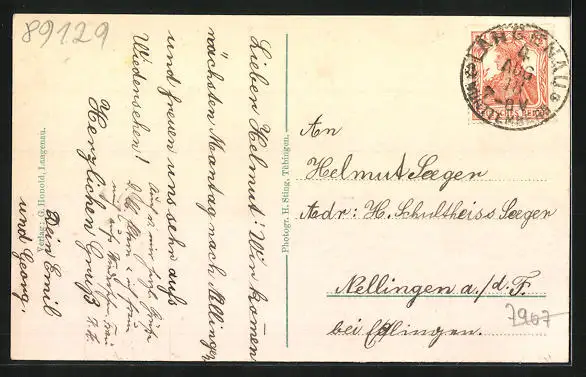 89129
LANGENAU
4
AUG
7-8V
WÜRTTEMBERG
Lieber Helmut! Wir komen
nächsten Montag nach Nellingen
und freuen uns sehr aufs
Wiedersehen!
Herzlichen Gruß
Dein Emil
und Georg.
Verlag: G. Honold, Langenau.
Photogr. H. Sting, Tübingen.
An
Helmut Seeger
Adr: H. Schultheiss Seeger
Nellingen a./d. F.
bei Eßlingen.
7907